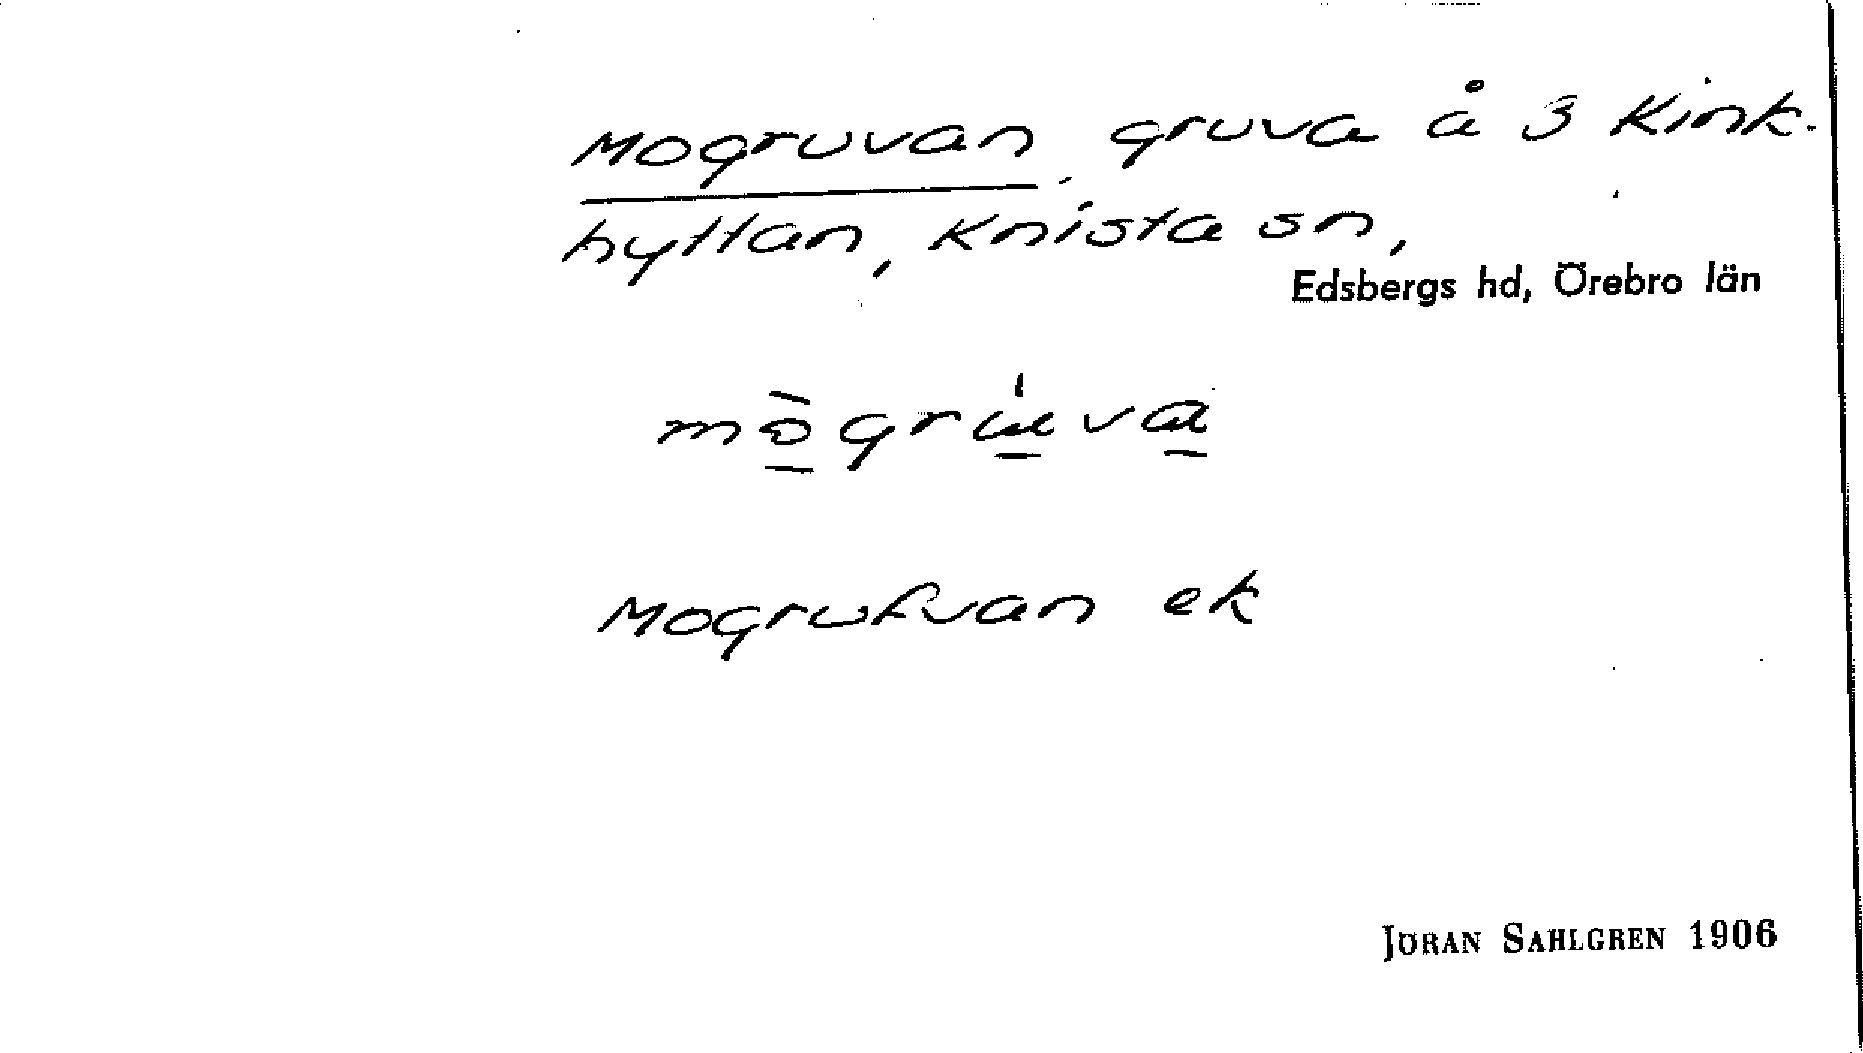 Mogruvan, gruva å 3 Kink-
hyttan, Knista sn,
Edsbergs hd, Örebro län
mògrúva
Mogrufvan ek
JÖRAN SAHLGREN 1906